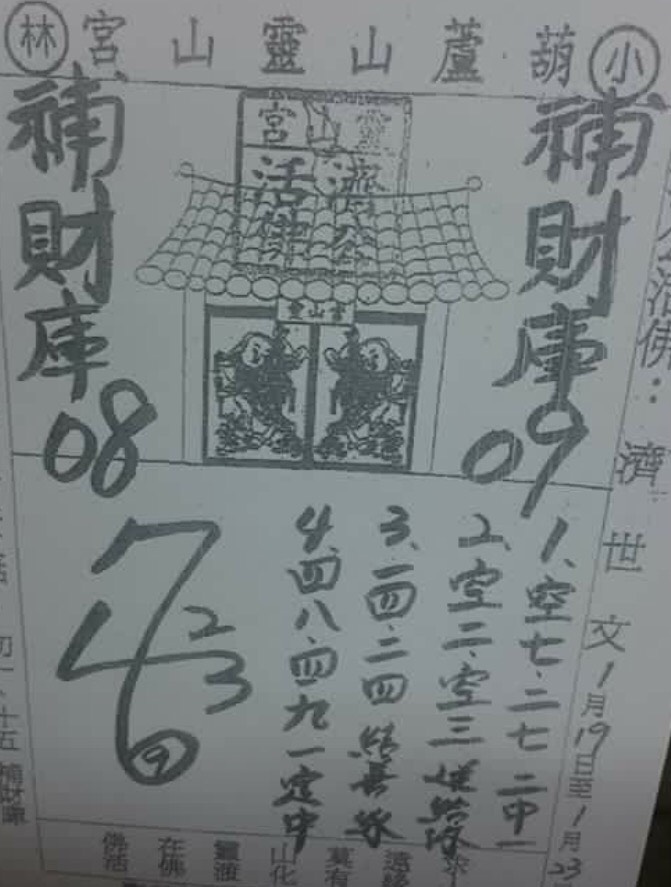 小
葫蘆山靈山宮
林
補財庫
09
補財庫
08
靈山宮
濟公
活佛
靈山宮
活佛：
濟世文
1月19日至1月23
1、空七·二七 二中一
2、空二·空三
3、一四·二四 結善緣
4、四八·四九一定中
7
2
3
初一、十五 補財庫
莫有
山化
靈濟
在佛
佛活